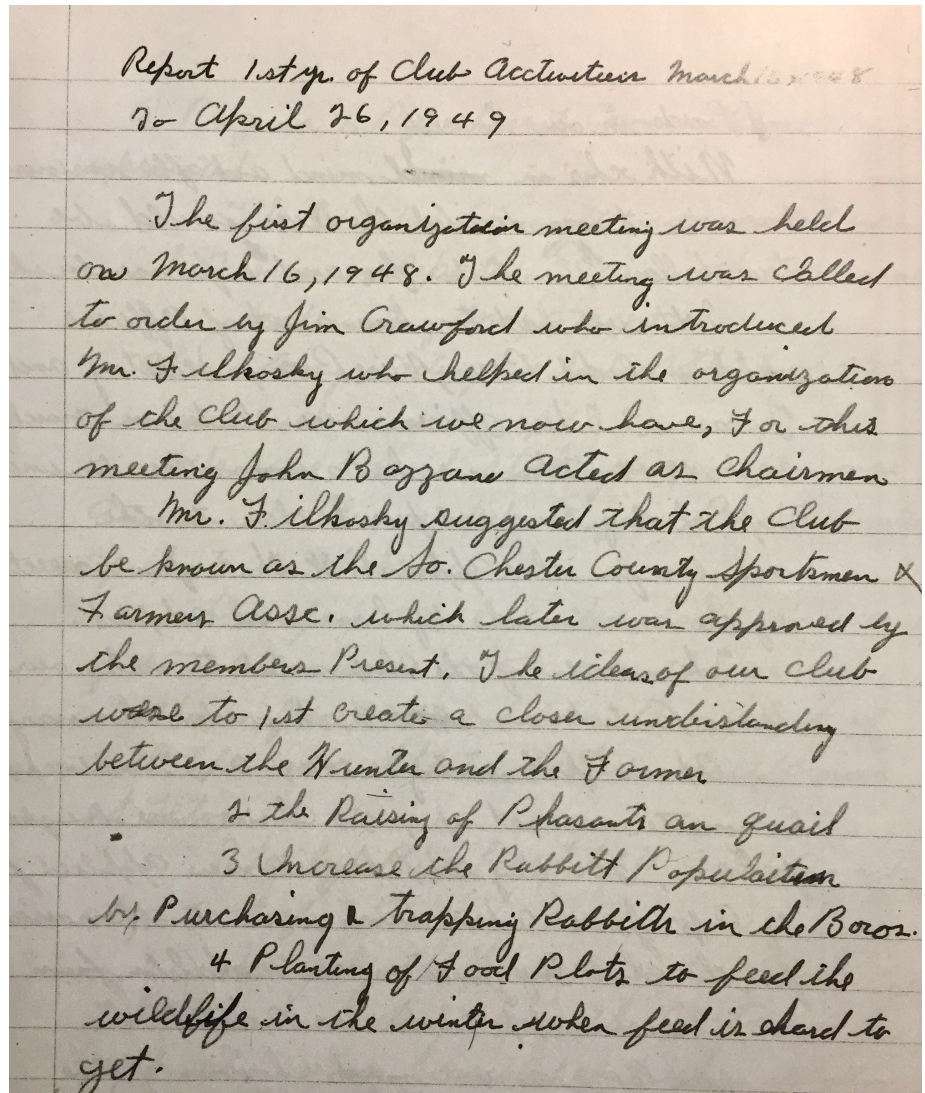 Report 1st yr. of Club Acctivities March 16, 1948
To April 26, 1949
The first organization meeting was held
on March 16, 1948. The meeting was called
to order by Jim Crawford who introduced
Mr. Filkosky who helped in the organization
of the Club which we now have, For this
meeting John Bazzano acted as Chairmen
Mr. Filkosky suggested that the Club
be known as the So. Chester County Sportsmen &
Farmers Assc. which later was approved by
the members Present. The ideas of our Club
were to 1st create a closer undistanding
between the Hunter and the Farmer
2 the Raising of Phasants an quail
3 Increase the Rabbitt Population
by Purchasing & trapping Rabbitts in the Boros.
4 Planting of Food Plots to feed the
wildfife in the winter when feed is hard to
get.